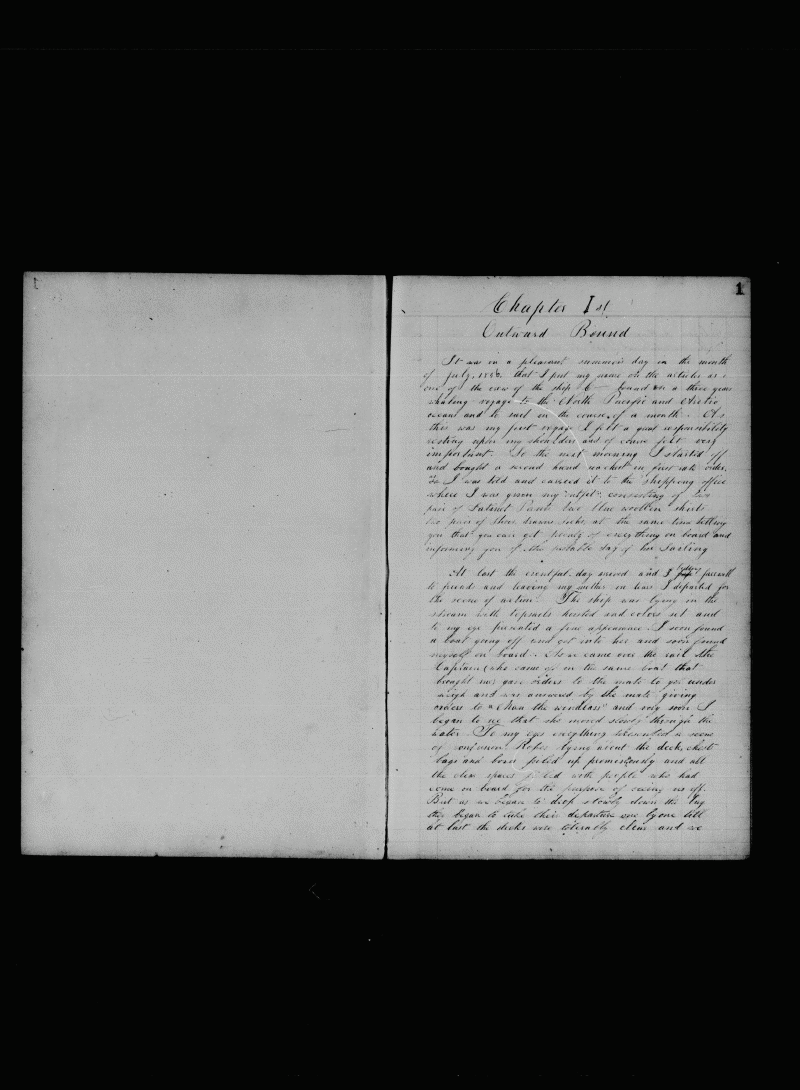 1
Chapter Ist
Outward Bound
It was in a pleasant summers day in the month
of July, that I put my name on the articles as
one of the crew of the ship bound on a three years
whaling voyage to the North Pacific and Arctic
oceans and to sail in the course of a month. As
this was my first voyage I felt a great responsibility
resting upon my shoulders and of course felt very
important. So the next morning I started off
and bought a second hand in first rate order,
so I was told and carried it to the shipping office
where I was given my outfit, consisting of two
pair of Pants two blue woollen shirts
two pair of shoes, at the same time telling
you that you can get plenty of everything on board and
informing you of the probable day of her
At last the eventful day arrived and I farewell
to friends and leaving my mother in tears I departed for
the scene of action. The ship was lying in the
stream with topsails hoisted and colors set and
to my eye presented a fine appearance. I soon found
a boat going off and got into her and soon found
myself on board. As we came over the rail the
Captain (who came off in the same boat that
brought me) gave orders to the mate to get under
weigh and was answered by the mate giving
orders to "Man the windlass" and very soon I
began to see that she moved slowly through the
water. To my eyes everything presented a scene
of confusion. Ropes lying about the deck, chests
bags and boxes piled up promiscuously and all
the clear spaces filled with people who had
come on board for the purpose of seeing us off.
But as we began to drop slowly down the bay
they began to take their departure one by one till
at last the decks were tolerably clear and we